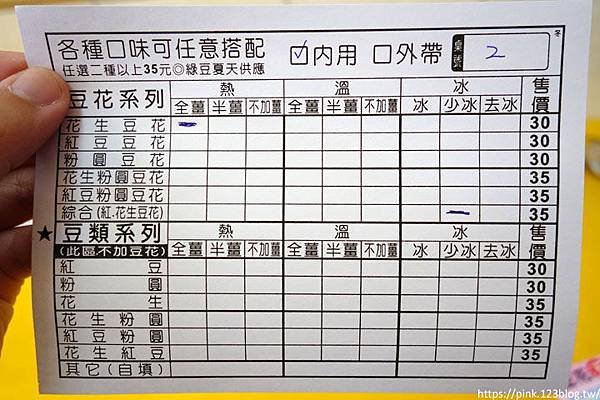 各種口味可任意搭配 ☑內用 口外帶 桌號 2
任選二種以上35元◎綠豆夏天供應
豆花系列 熱 溫 冰 售價
全薑 半薑 不加薑 全薑 半薑 不加薑 冰 少冰 去冰
花生豆花 30
紅豆豆花 30
粉圓豆花 30
花生粉圓豆花 35
紅豆粉圓豆花 35
綜合(紅.花生豆花) 35
★豆類系列 熱 溫 冰 售價
(此區不加豆花) 全薑 半薑 不加薑 全薑 半薑 不加薑 冰 少冰 去冰
紅豆 30
粉圓 30
花生 35
花生粉圓 35
紅豆粉圓 35
花生紅豆 35
其它(自填)
https://pink.123blog.tw/